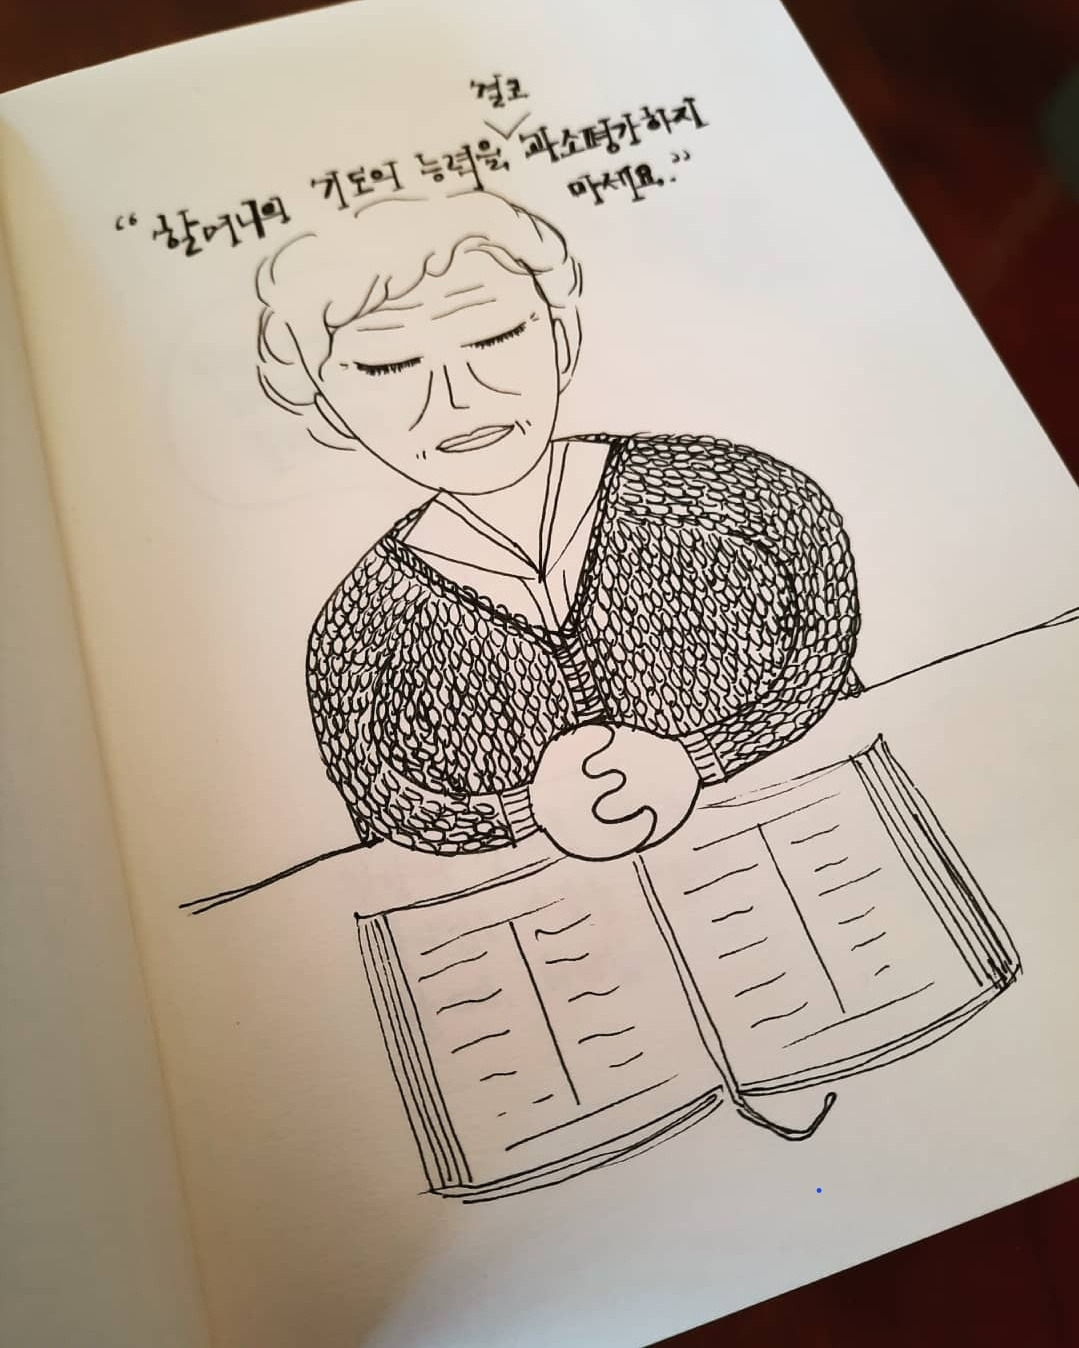 결코
“할머니의 기도의 능력을, 과소평가하지
마세요.”